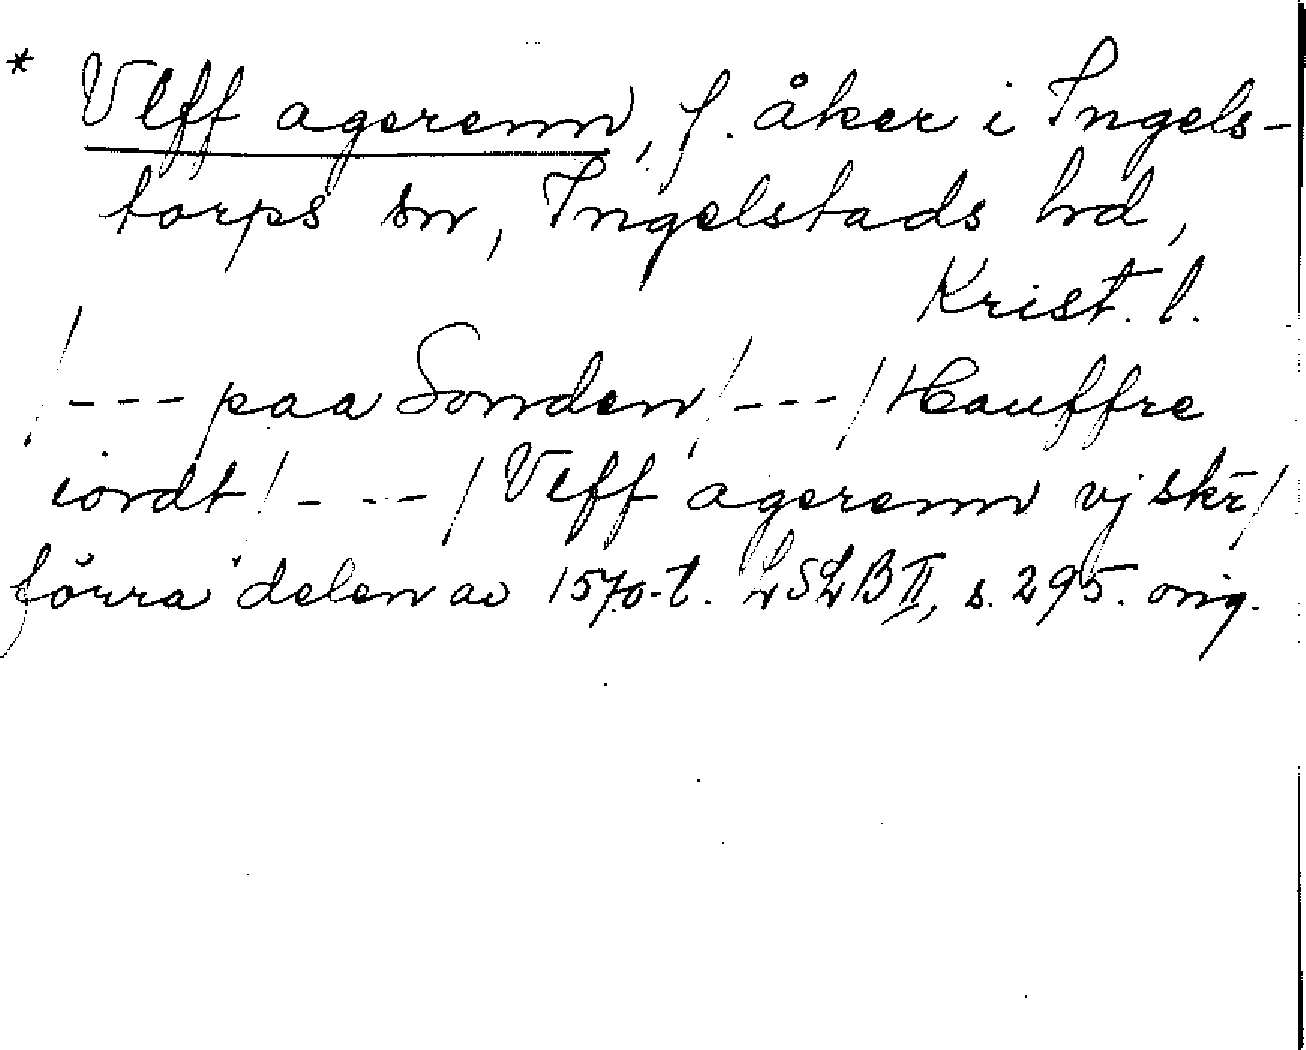 * Vlff agerenn, f. åker i Ingels-
torps sn, Ingelstads hd,
Krist. l.
/--- paa Sonden /---/ Hauffre
iordt /---/ Vlff agerenn vj skr̄/
förra delen av 1570-t. LSLB II, s. 295. orig.